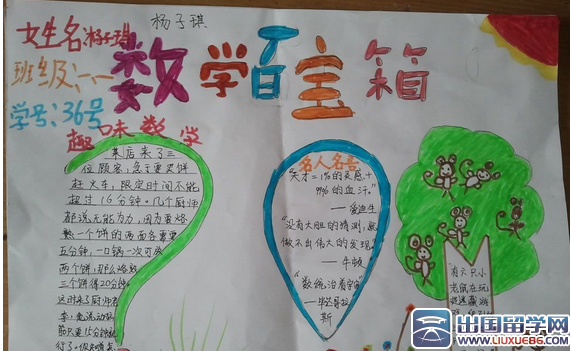 杨子琪
女生名:杨子琪
班级:一、一
学号:36号
数学百宝箱
趣味数学
某店来了三
位顾客,急于要买饼
赶火车,限定时间不能
超过16分钟。几个厨师
都说无能为力,因为要烙
熟一个饼的两面各需要
五分钟,一口锅一次可放
两个饼,那么烙熟
三个饼得20分钟。
这时来了厨师老
李,他说动足
筋只要15分钟就
行了。你知道怎
名人名言
“天才=1%的灵感+
99%的血汗。”
——爱迪生
“没有大胆的猜测,就
做不出伟大的发现。”
——牛顿
“数统治着宇宙”
——毕达哥拉
斯
有六只小
老鼠在玩
捉迷藏游
出国留学网
WWW.LIUXUE86.COM